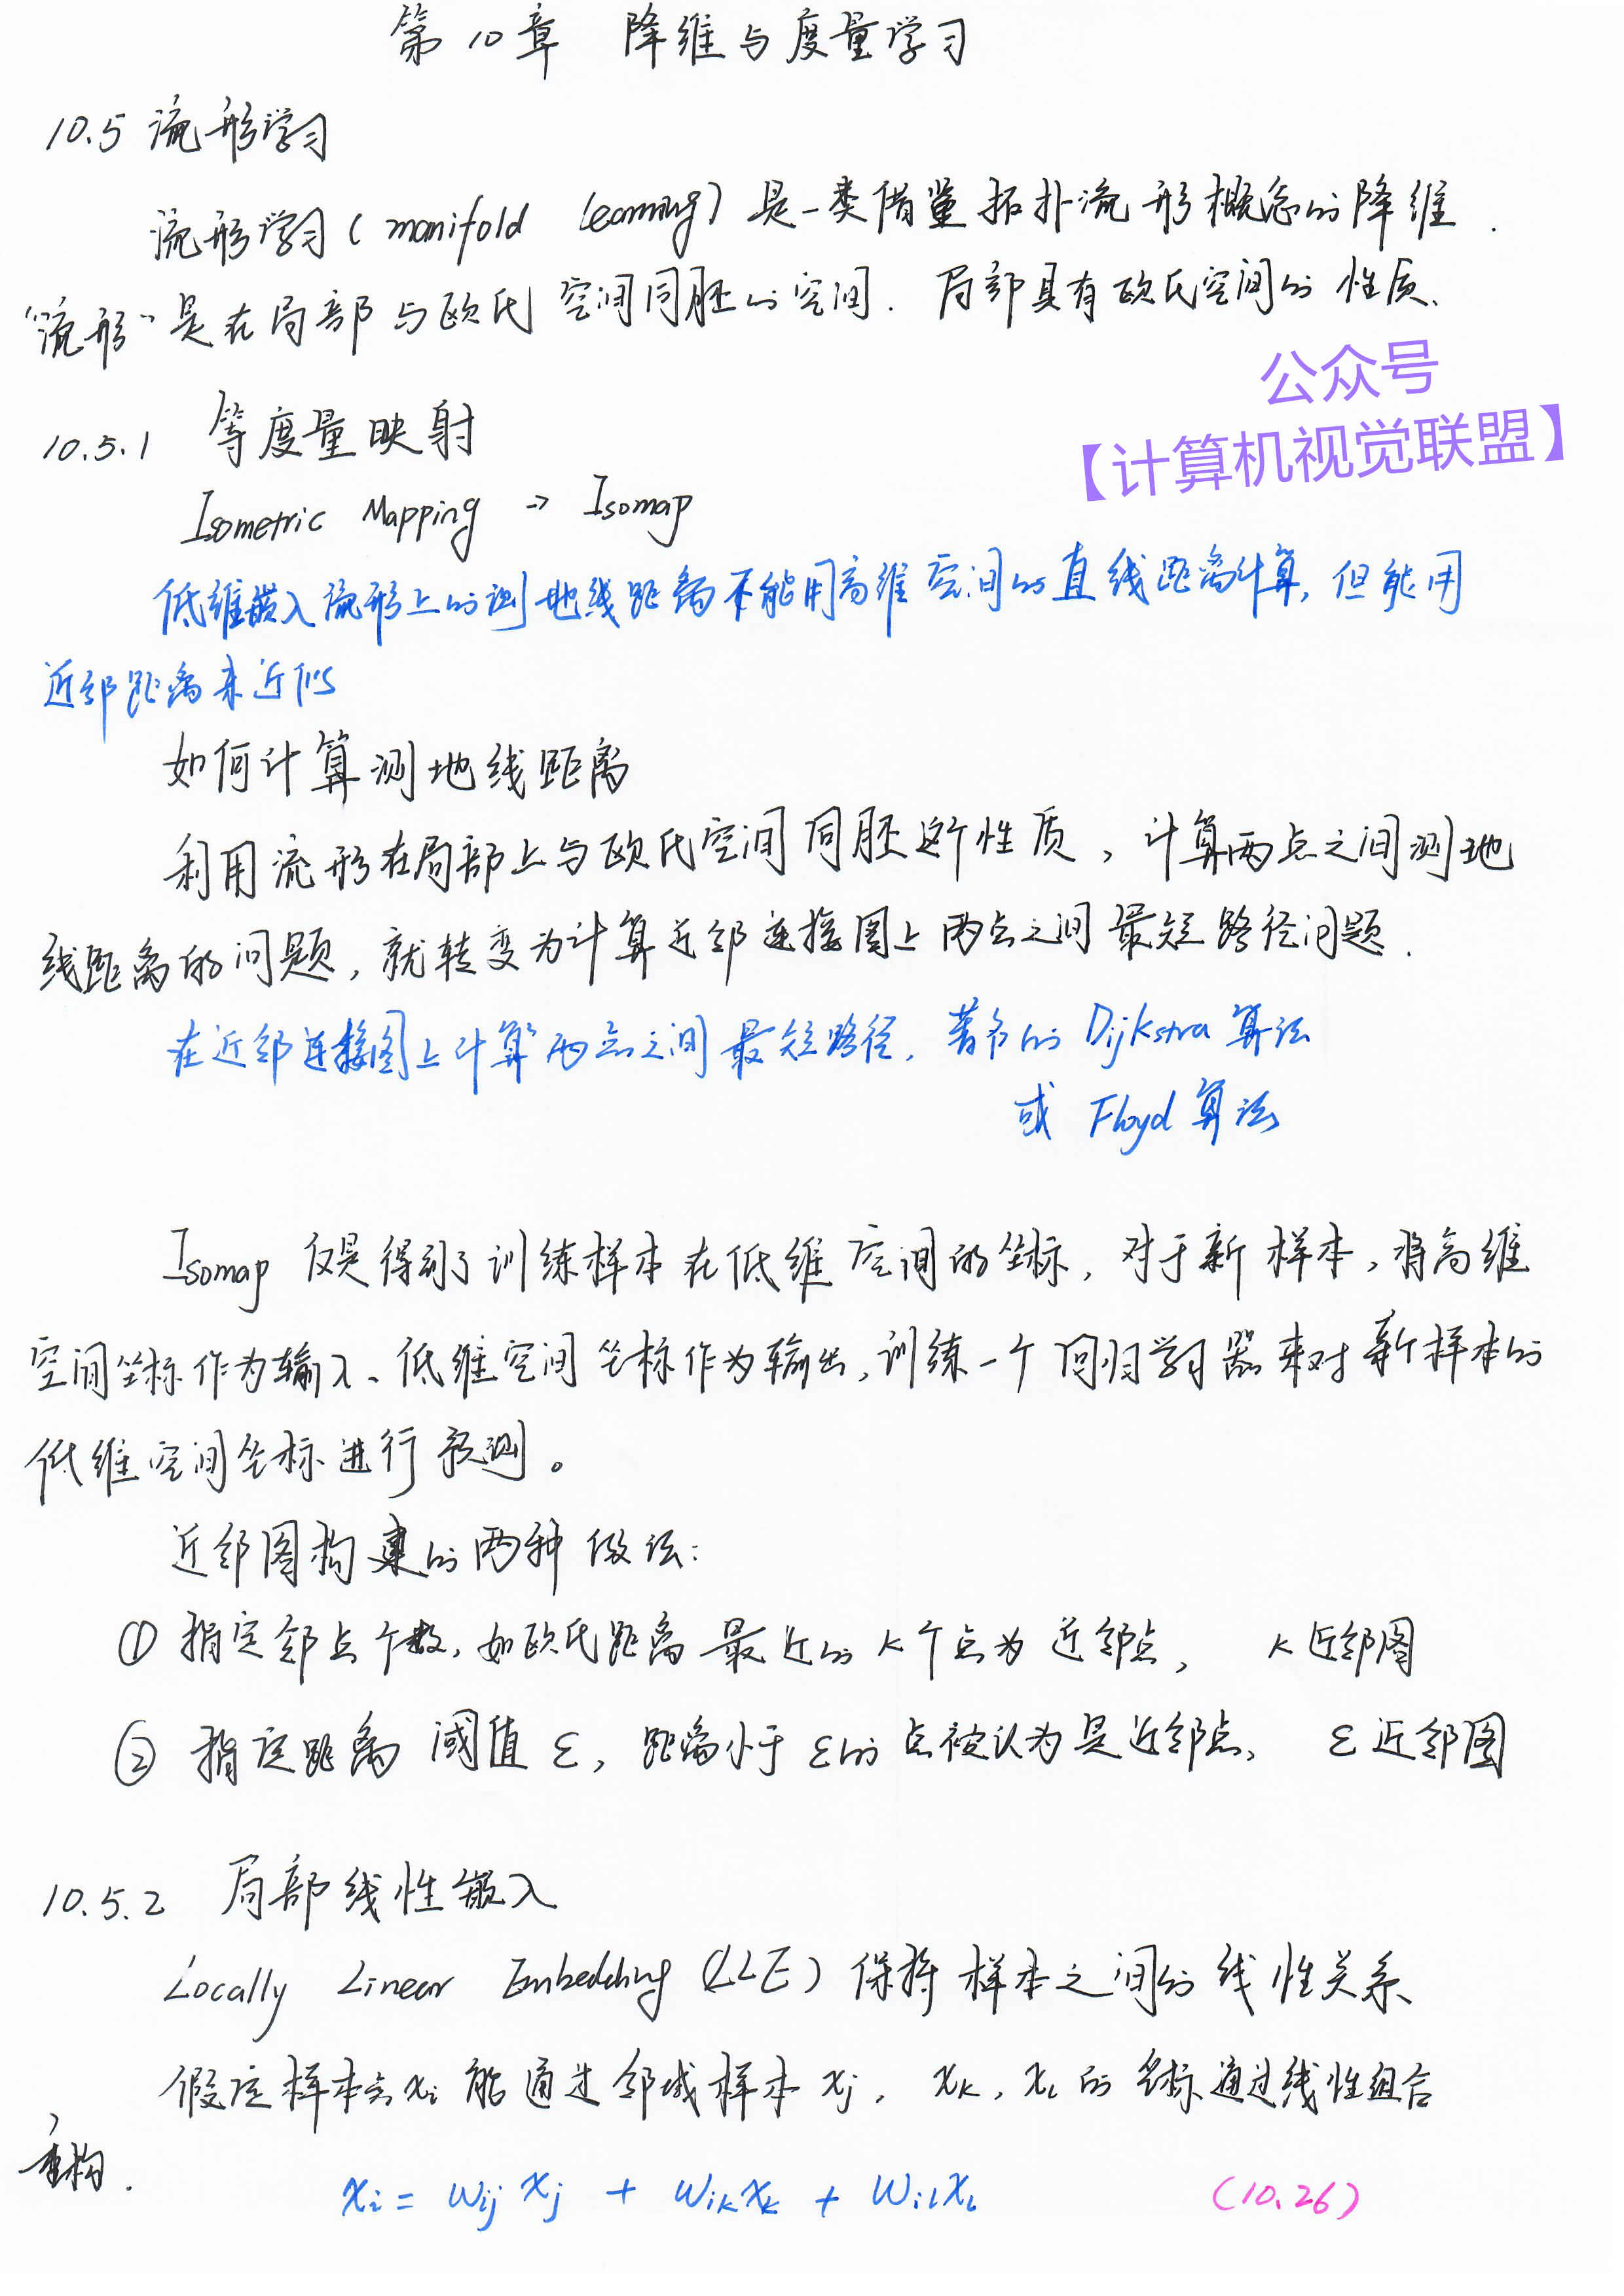 第10章 降维与度量学习
10.5 流形学习
流形学习(manifold learning)是一类借鉴拓扑流形概念的降维.
"流形"是在局部与欧氏空间同胚的空间. 局部具有欧氏空间的性质.
公众号
【计算机视觉联盟】
10.5.1 等度量映射
Isometric Mapping → Isomap
低维嵌入流形上的测地线距离不能用高维空间的直线距离计算, 但能用
近邻距离来近似
如何计算测地线距离
利用流形在局部上与欧氏空间同胚这个性质, 计算两点之间测地
线距离的问题, 就转变为计算近邻连接图上两点之间最短路径问题.
在近邻连接图上计算两点之间最短路径, 著名的Dijkstra算法
或 Floyd算法
Isomap 仅是得到了训练样本在低维空间的坐标, 对于新样本, 将高维
空间坐标作为输入、低维空间坐标作为输出, 训练一个回归学习器来对新样本的
低维空间坐标进行预测。
近邻图构建的两种做法:
① 指定邻点个数, 如欧氏距离最近的k个点为近邻点, k近邻图
② 指定距离阈值ε, 距离小于ε的点被认为是近邻点, ε近邻图
10.5.2 局部线性嵌入
Locally Linear Embedding (LLE) 保持样本之间的线性关系
假定样本点xi 能通过邻域样本xj, xk, xl 的坐标通过线性组合
重构.
xi = wij xj + wik xk + wil xl (10.26)